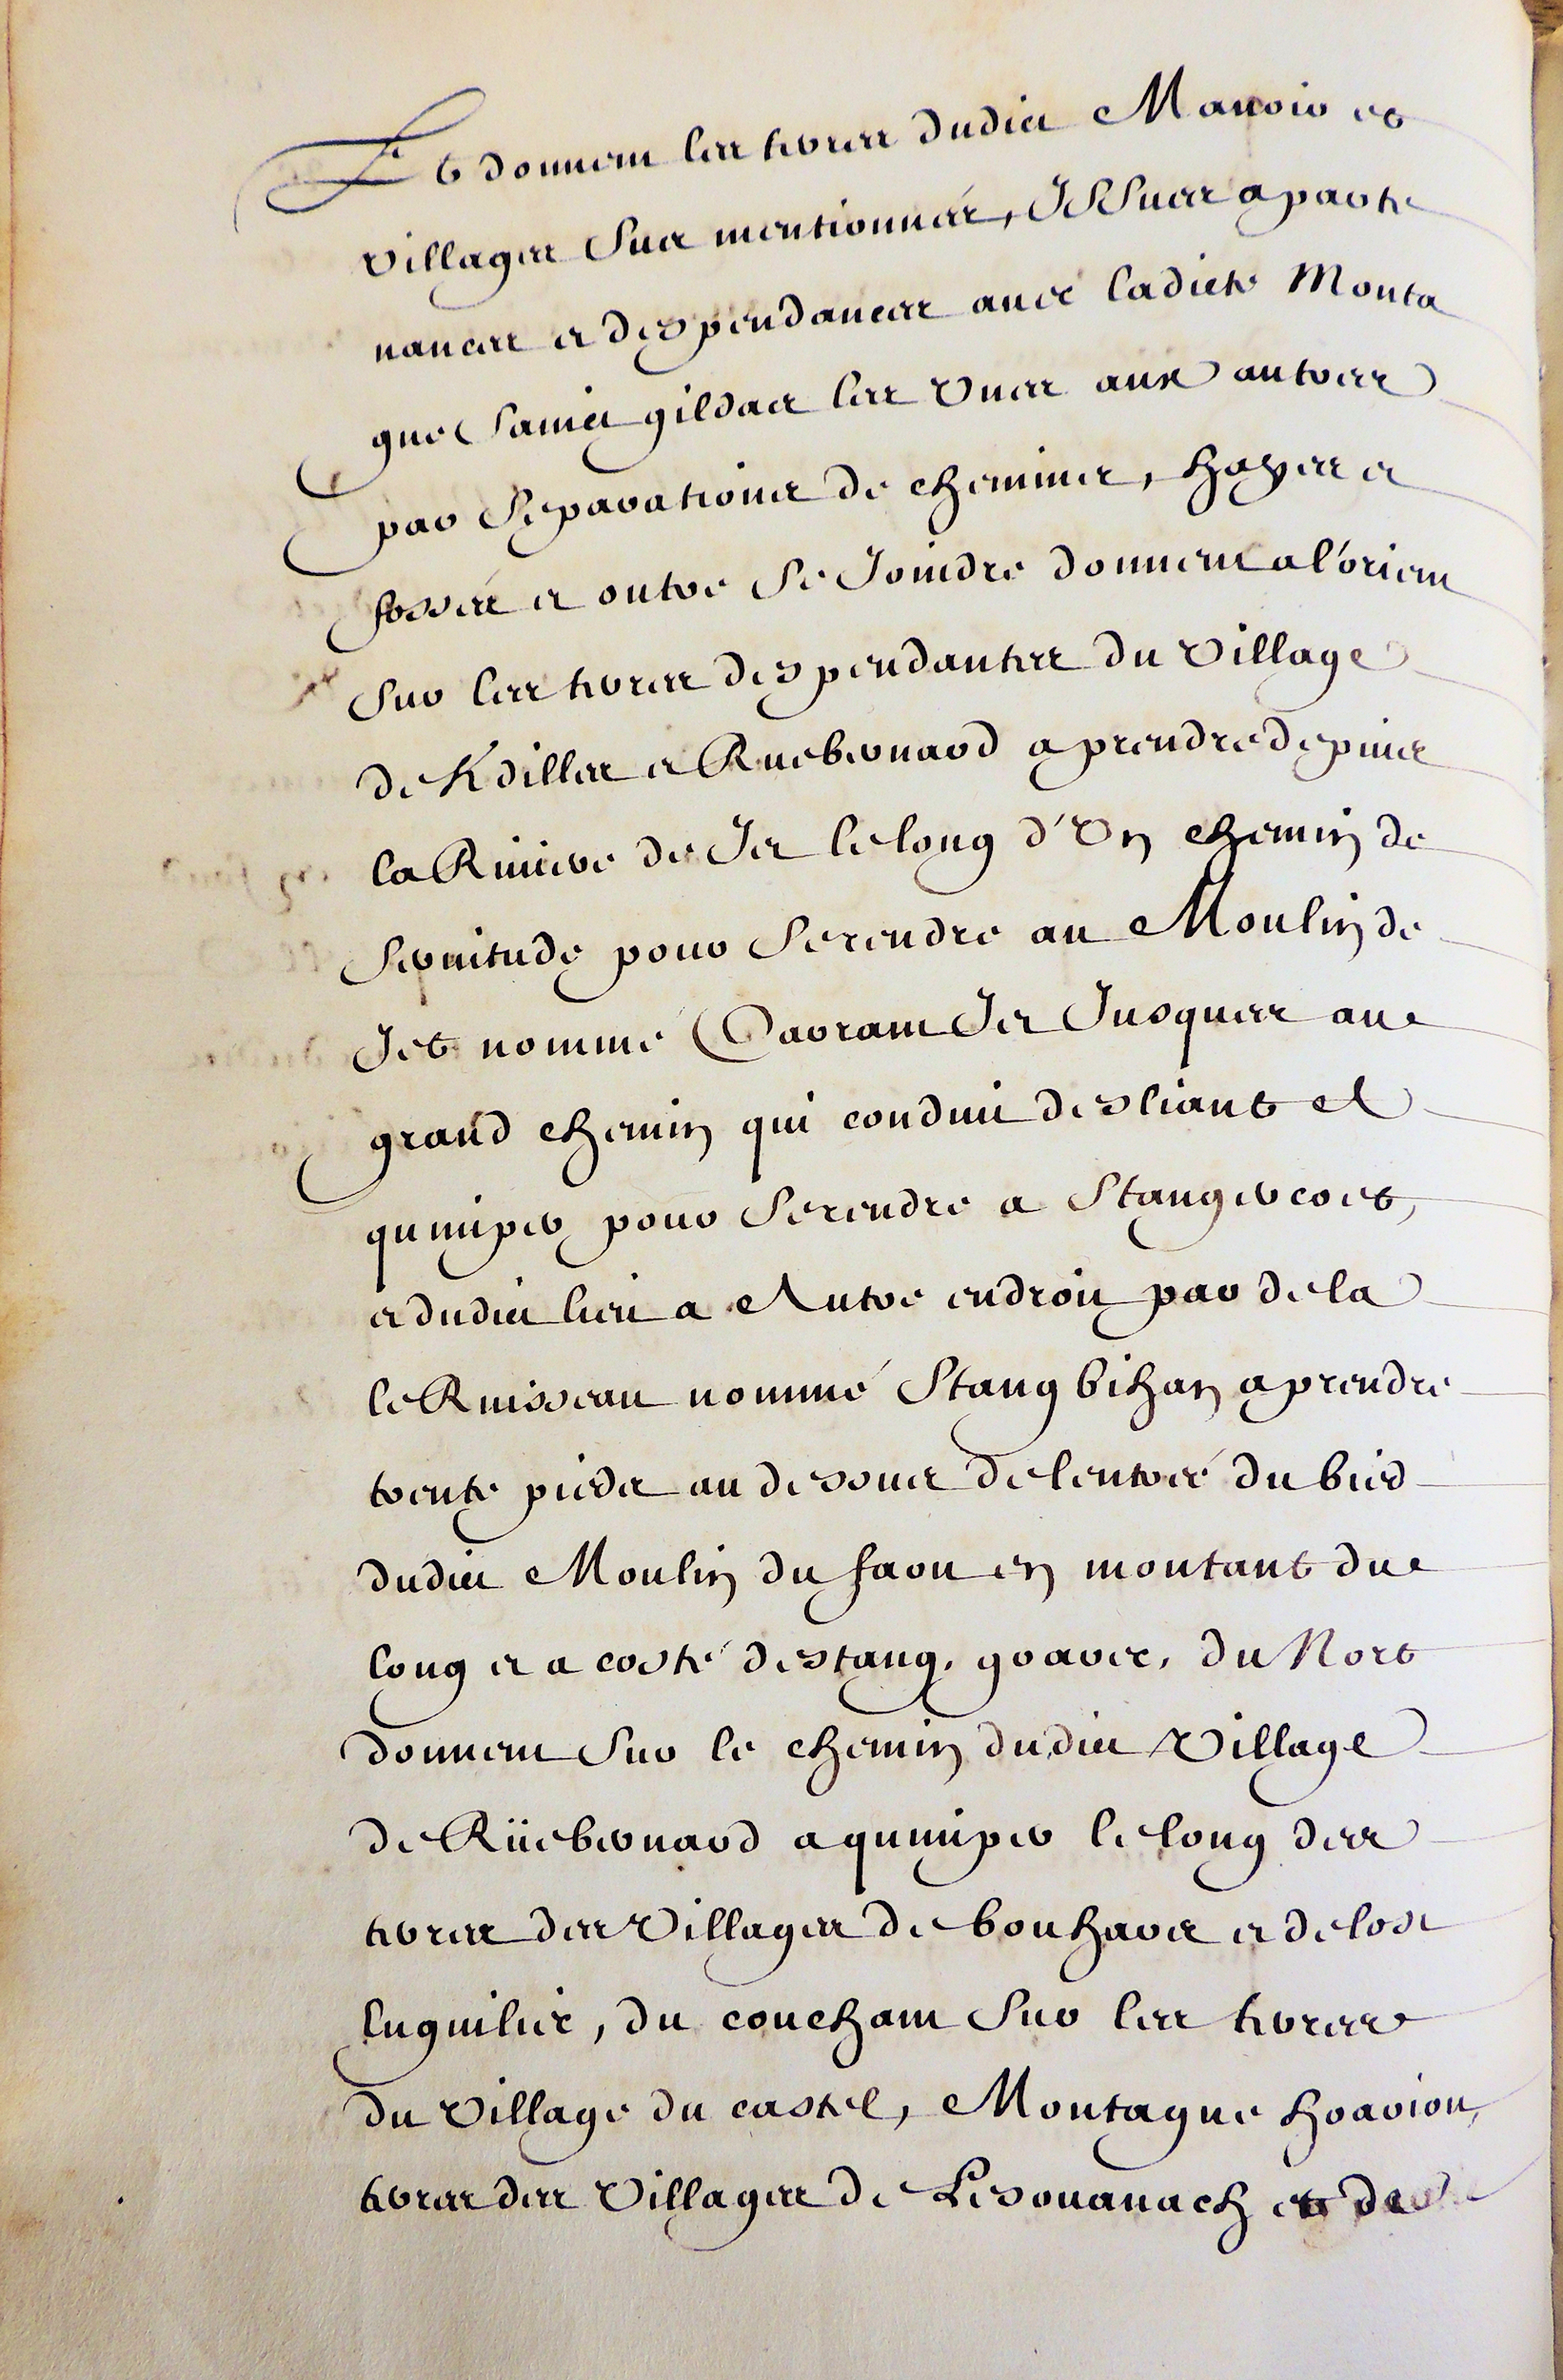 Et donnent les terres dudict Manoir et
villages sus mentionnés, Issues aparte
nances et despendances auec ladicte Monta
gne sainct gildas les vnes aux autres
par separations de chemins, hayes et
fossés et outre se Joindre donnent a l'orient
sur les terres despendantes du village
de Kdilles et Ruebernard a prendre depuis
la Riuiere de Iet le long d'vn chemin de
seruitude pour se rendre au Moulin de
Jet nommé Iet Jusques au
grand chemin qui conduit desliant et
quimper pour se rendre a Stangercoet,
et dudict lieu a Autre endroit par dela
le Ruisseau nommé Stang bihan a prendre
trente pieds au dessous de lentrée du bied
dudict Moulin du faou en montant du
long et a costé destang, goarec, du Nort
donnent sur le chemin dudict village
de Rüebernard a quimper le long des
terres des villages de bouharce et de lost
luguilie, du couchant sur les terres
du village du castel, Montagne hoarion,
terres des villages de Lesouanach et de